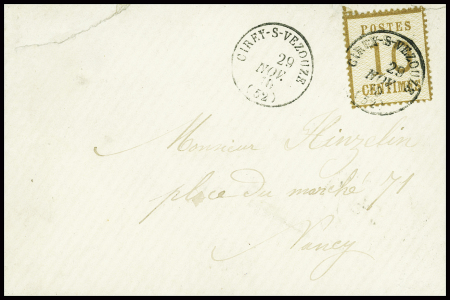 CIREY-S-VEZOUZE
29
NOV.
(52)
POSTES
10
CENTIMES
CIREY-S-VEZOUZE
29
NOV.
(52)
Monsieur Hinzelin
place du marché 71
Nancy